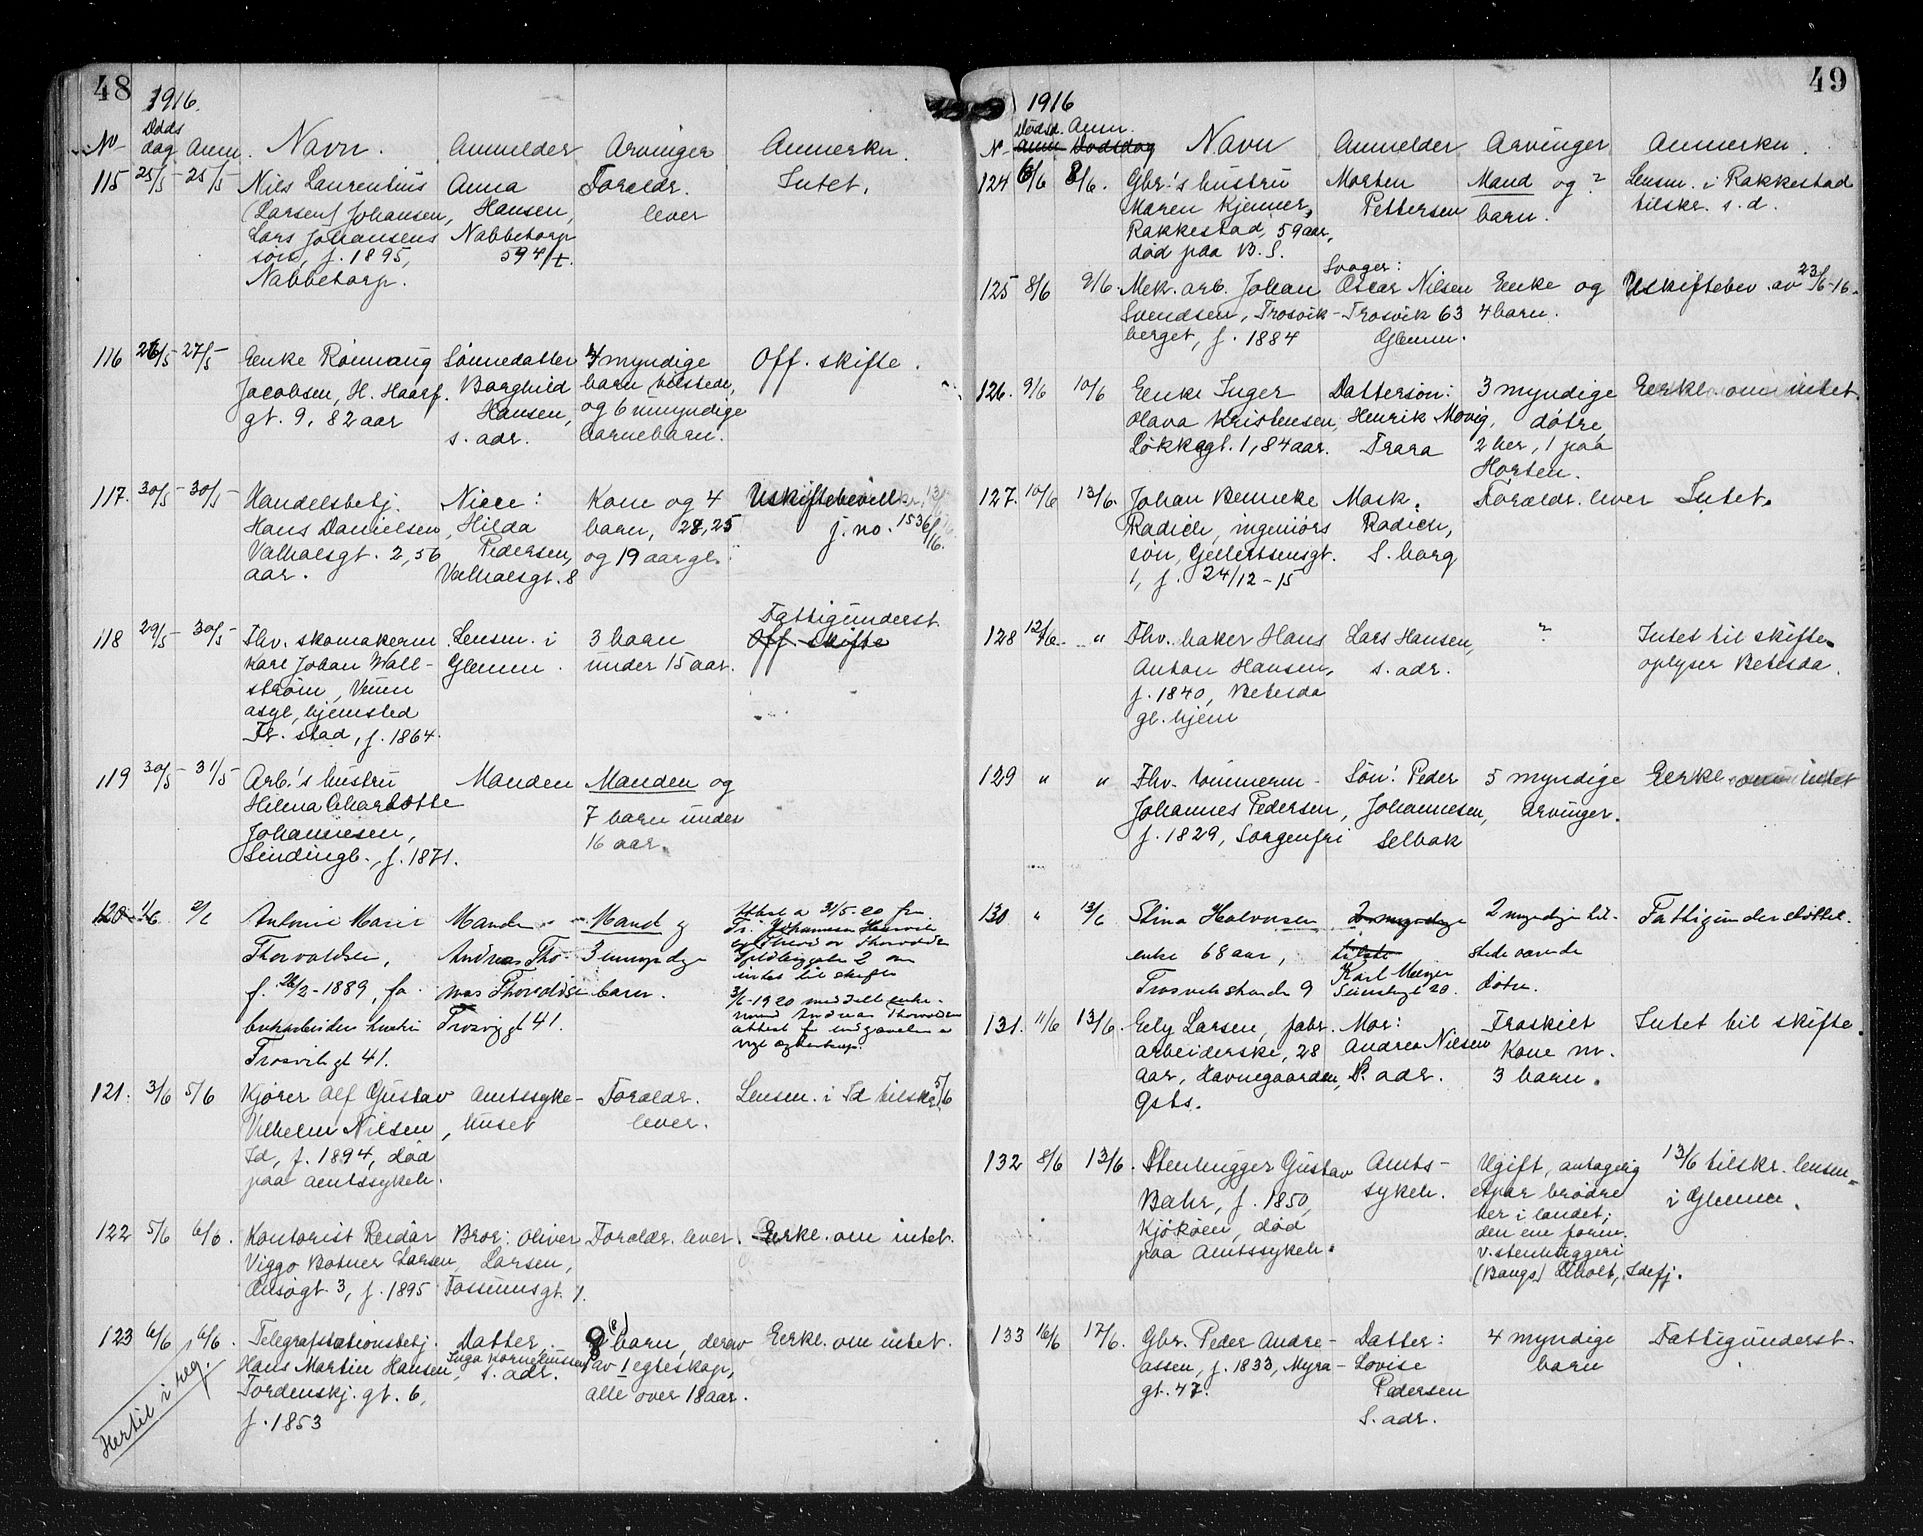 48
1916.
N- Døds dag Anm. Navn. Anmelder Arvinger Anmerkn.
115 25/5 - 25/5 Nils Laurentius Anna Foreldr. Intet.
(Larsen) Johansen, Hansen, lever
Lars Johansens Nabbetorp
søn, f. 1895, 594/t.
Nabbetorp.
116 26/5 - 27/5 Enke Rønnaug Sønnedatter 4 myndige Off. skifte.
Jacobsen, H. Haarf. Borghild barn tilstede,
gt. 9, 82 aar Hansen, og 6 umyndige
s. adr. barnebarn.
117. 30/5 - 30/5 Handelsbetj. Niece: Kone og 4 Uskiftebevill
Hans Danielsen, Hilda barn, 28, 25 j. no. 1536/16.
Valhalsgt. 2, 56 Pedersen, og 19 aar gl.
aar. Valhalsgt. 8
118 29/5 - 30/5 Fhv. skomakerm Lensm. i 3 barn Fattigunderst.
Karl Johan Wall- Glemm. under 15 aar. Off. skifte
strøm, Veum
asyl, hjemsted
Fr. stad, f. 1864.
119 30/5 - 31/5 Arb.'s hustru Manden Manden og
Hilma Charlotte 7 barn under
Johannesen, 16 aar.
Lindingb., f. 1871.
120 1/6 2/6 Antonie Marie Manden Mand og Attest a 31/5-20 fra
Thorvaldsen, Andreas Tho- 3 umyndige
f. 26/2-1889, fa- mas Thorvaldsen barn. intet til skifte
brikarbeiders hustru Trosvig gt 41. 3/6-1920 meddelt enke-
Trosvik gt 41. mand Andreas Thorvaldsen
121. 3/6 5/6 Kjører Alf Gustav Amtssyke- Foreldr. Lensm. i Id tilskr. 5/6
Vilhelm Nilsen, huset lever.
Id, f. 1894, død
paa amtssykeh.
122 5/6 6/6. Kontorist Reidar Bror: Oliver Foreldr. lever. Erkl. om intet.
Viggo Botner Larsen, Larsen,
Onsøgt. 3, f. 1895 Fossumsgt. 1.
123 6/6 6/6. Telegrafstationsbetj. Datter, 8 (8) barn, derav Erkl. om intet.
Hans Martin Hansen, Inga Korneliussen s. adr. av 1 egteskap,
Tordenskj. gt. 6, alle over 18 aar.
f. 1853
Hertil i reg.
49
1916
N- Dødsd. Anm. Anm. Dødsdag Navn Anmelder Arvinger Anmerkn.
124 6/6 8/6. Gbr.'s hustru Morten Mand og ? Lensm. i Rakkestad
Maren Kjenner, Pettersen barn. tilskr. s. d.
Rakkestad, 59 aar,
død paa B. S.
125 8/6 9/6. Mek. arb. Johan Svoger: Oscar Nilsen Enke og Uskiftebev. av 23/6-16.
Svendsen, Trosvik- Trosvik 63 4 barn.
berget, f. 1884 Glemm.
126. 9/6 10/6 Enke Inger Dattersøn: 3 myndige Erkl. om intet.
Olava Kristensen, Henrik Movig, døtre,
Løkkegt. 1, 84 aar. Trara 2 her, 1 paa
Horten.
127. 10/6 13/6. Johan Benneke Mosk. Foreldr. lever Intet.
Radich, ingeniørs Radich,
søn, Gellertsensgt. S. borg
1, f. 24/12-15
128 12/6. " Fhv. baker Hans Lars Hansen, ? Intet til skifte
Anton Hansen, s. adr. oplyser Betesda.
f. 1840, Betesda
gl. hjem
129 " " Fhv. tømmerm. Søn: Peder 5 myndige Erkl. om intet
Johannes Pedersen, Johannesen, arvinger.
f. 1829, Sorgenfri Selbak
130 " 13/6 Stina Halvorsen 2 myndige 2 myndige til- Fattigunderstøttet.
enke 68 aar, tilste stedeværende
Trosvikstrande 9 Karl Meyer 20. døtre.
131. 11/6 13/6. Elly Larsen, fabr. Mor: Fraskilt Intet til skifte.
arbeiderske, 28 Andrea Nilsen Kone m.
aar, Havnegaarden, S. adr. 3 barn.
Gsts.
132 8/6 13/6. Stenhugger Gustav Amts- Ugift, antagelig 13/6 tilskr. lensm.
Bahr, f. 1850, sykeh. et par brødre i Glemm.
Kjøkøen, død her i landet;
paa Amtssykeh. den ene form.
v. stenhuggeri
(Bangs) Liholt, Idefj.
133 16/6 17/6. Gbr. Peder Andre- Datter: 4 myndige Fattigunderst.
assen, f. 1833, Myra- Lovise barn
gt. 47. Pedersen
S. adr.